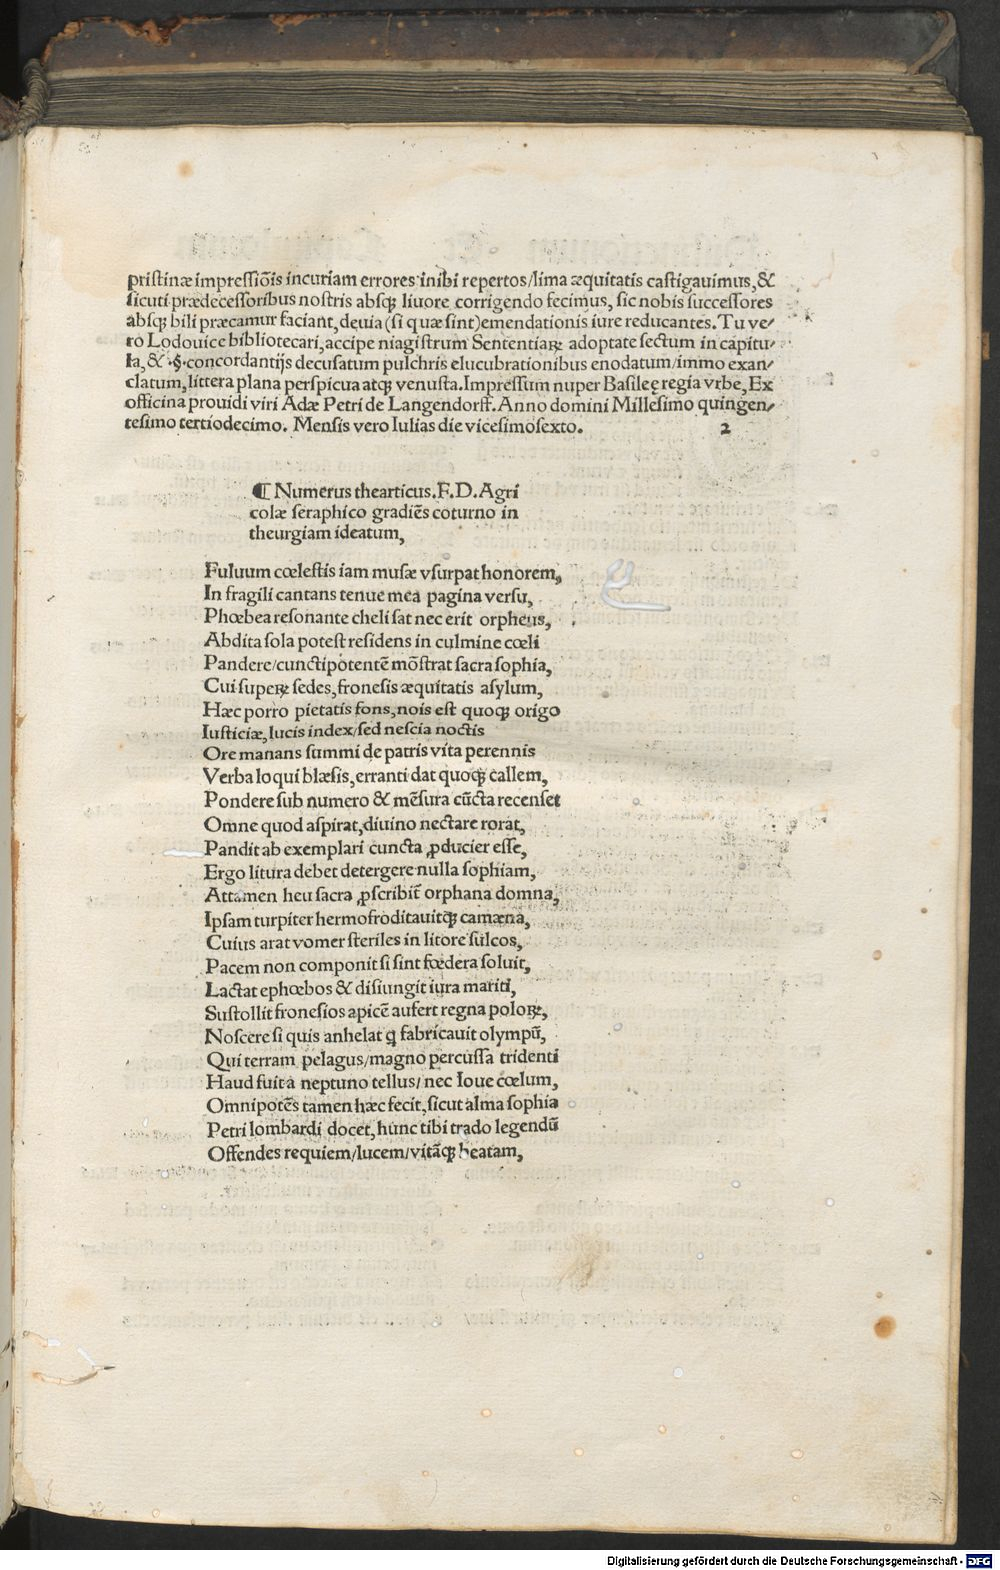 pristinæ impressiōis incuriam errores inibi repertos/lima æquitatis castigauimus, &
sicuti prædecessoribus nostris absqꝫ liuore corrigendo fecimus, sic nobis successores
absqꝫ bili præcamur faciant, deuia (si quæ sint) emendationis iure reducantes. Tu ve/
ro Lodouice bibliotecari, accipe magistrum Sententiaꝝ adoptate sectum in capitu/
la, & .§. concordantijs decusatum pulchris elucubrationibus enodatum/immo exan/
clatum, littera plana perspicua atqꝫ venusta. Impressum nuper Basileę regia vrbe, Ex
officina prouidi viri Adæ Petri de Langendorff. Anno domini Millesimo quingen/
tesimo tertiodecimo. Mensis vero Iulias die vicesimosexto.
2
¶ Numerus thearticus. F. D. Agri
colæ seraphico gradiēs coturno in
theurgiam ideatum,
Fuluum cœlestis iam musæ vsurpat honorem,
In fragili cantans tenue mea pagina versu,
Phœbea resonante cheli sat nec erit orpheus,
Abdita sola potest residens in culmine cœli
Pandere/cunctipotentē mōstrat sacra sophia,
Cui supeꝝ sedes, fronesis æquitatis asylum,
Hæc porro pietatis fons, nois est quoqꝫ origo
Iusticiæ, lucis index/sed nescia noctis
Ore manans summi de patris vita perennis
Verba loqui blæsis, erranti dat quoqꝫ callem,
Pondere sub numero & mēsura cūcta recenset
Omne quod aspirat, diuino nectare rorat,
Pandit ab exemplari cuncta ꝓducier esse,
Ergo litura debet detergere nulla sophiam,
Attamen heu sacra ꝓscribit̄ orphana domna,
Ipsam turpiter hermofroditauitqꝫ camæna,
Cuius arat vomer steriles in litore sulcos,
Pacem non componit si sint fœdera soluit,
Lactat ephœbos & disiungit iura mariti,
Sustollit fronesios apicē aufert regna poloꝝ,
Noscere si quis anhelat ꝙ fabricauit olympū,
Qui terram pelagus/magno percussa tridenti
Haud fuit a neptuno tellus/ nec Ioue cœlum,
Omnipotēs tamen hæc fecit, sicut alma sophia
Petri lombardi docet, hunc tibi trado legendū
Offendes requiem/lucem/vitāqꝫ beatam,
Digitalisierung gefördert durch die Deutsche Forschungsgemeinschaft - DFG